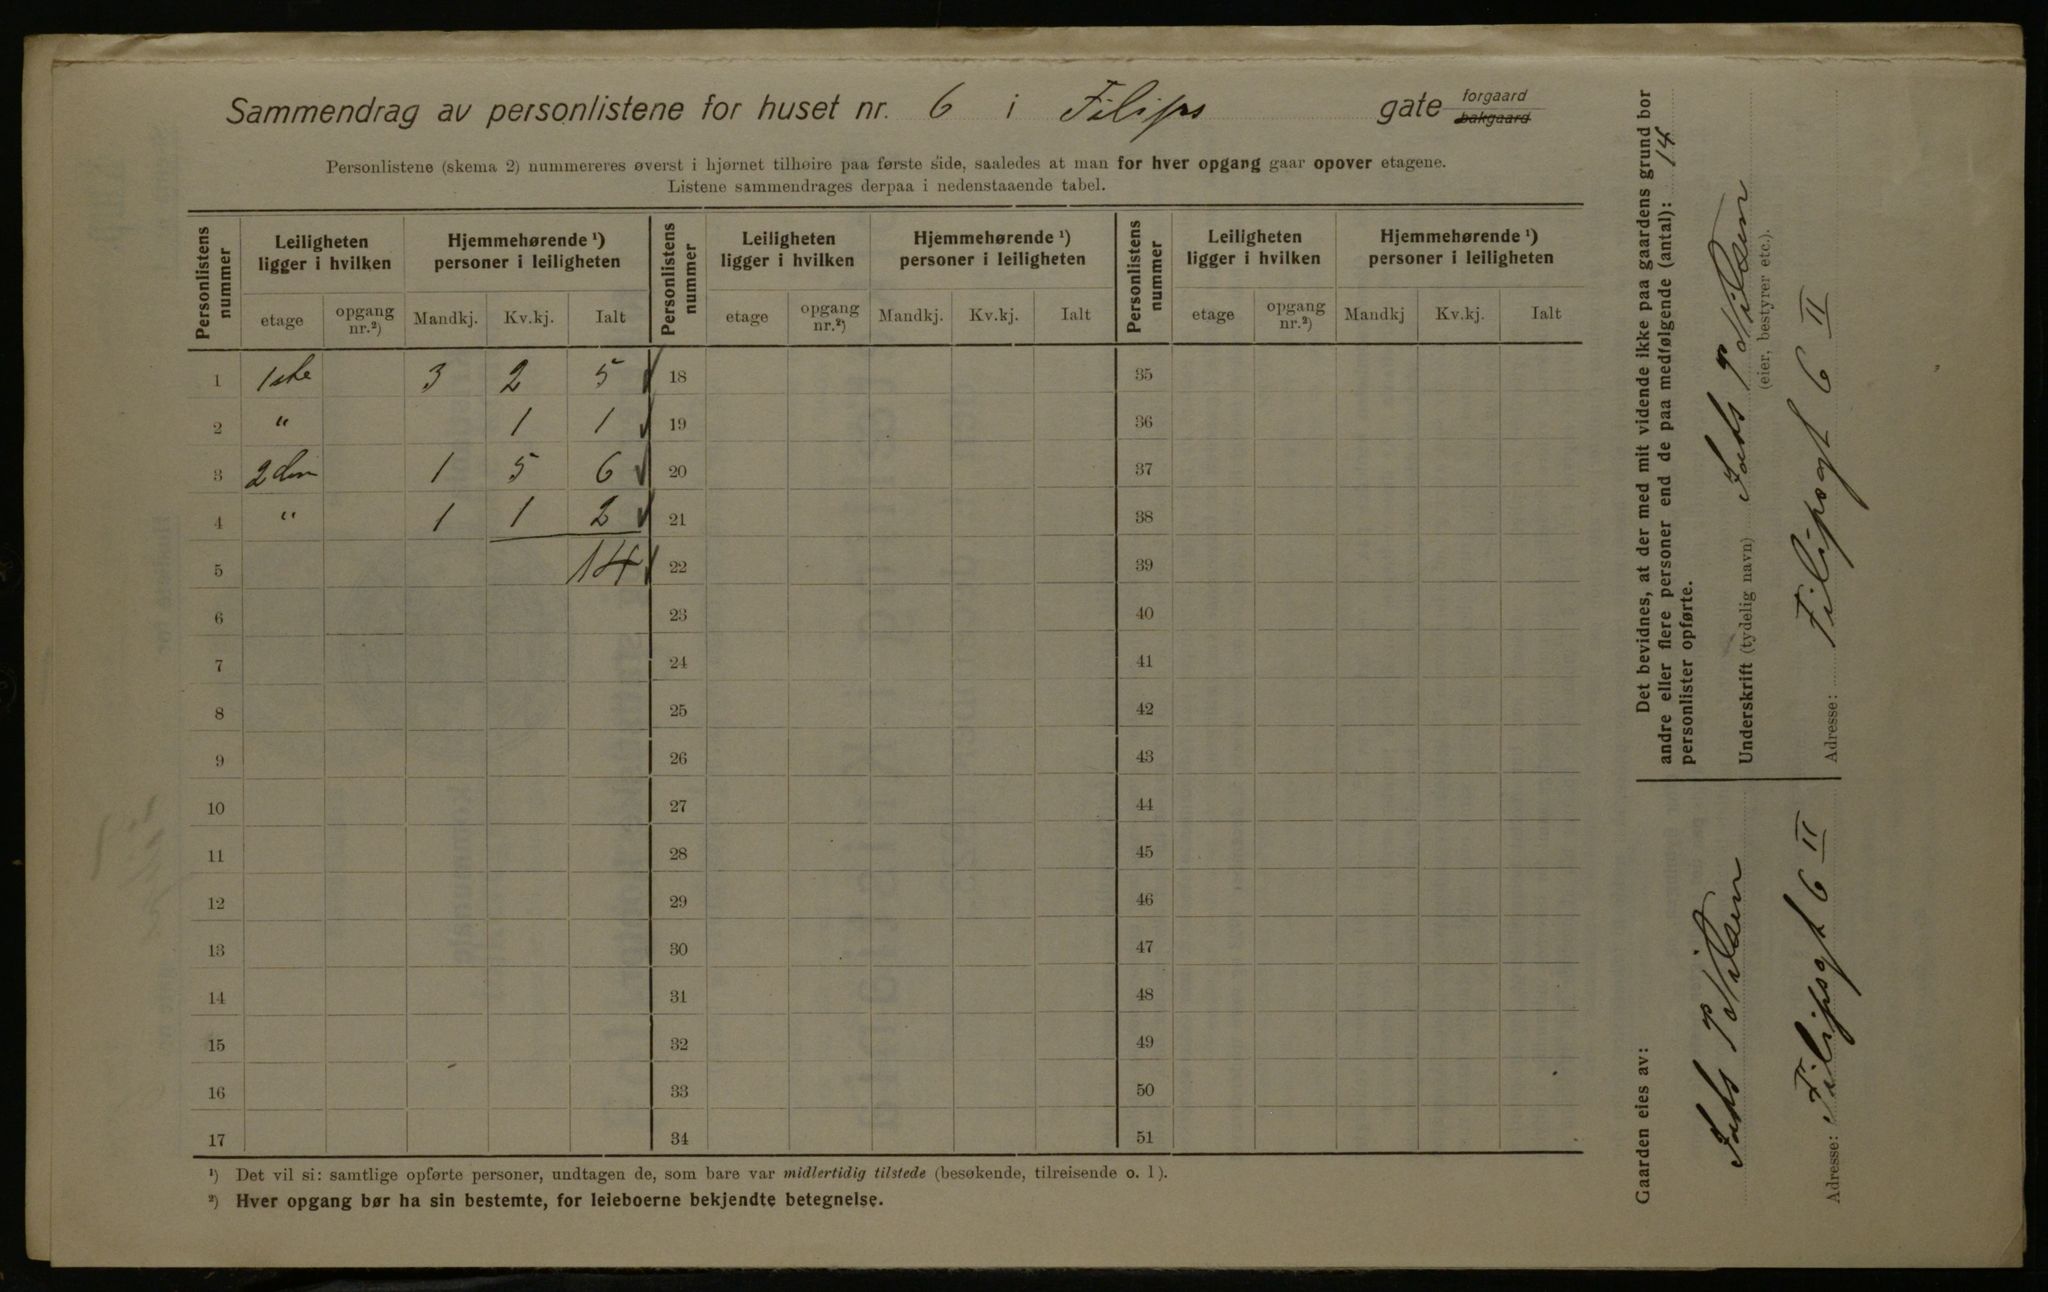 Sammendrag av personlistene for huset nr. 6 i Filips gate forgaard bakgaard
Personlistene (skema 2) nummereres øverst i hjørnet tilhøire paa første side, saaledes at man for hver opgang gaar opover etagene.
Listene sammendrages derpaa i nedenstaaende tabel.
Personlistens nummer Leiligheten ligger i hvilken Hjemmehørende ¹) personer i leiligheten Personlistens nummer Leiligheten ligger i hvilken Hjemmehørende ¹) personer i leiligheten Personlistens nummer Leiligheten ligger i hvilken Hjemmehørende ¹) personer i leiligheten
etage opgang nr.²) Mandkj. Kv.kj. Ialt etage opgang nr.²) Mandkj. Kv.kj. Ialt etage opgang nr.²) Mandkj Kv.kj. Ialt
1 1ste 3 2 5 18 35
2 " 1 1 19 36
3 2den 1 5 6 20 37
4 " 1 1 2 21 38
5 14 22 39
6 23 40
7 24 41
8 25 42
9 26 43
10 27 44
11 28 45
12 29 46
13 30 47
14 31 48
15 32 49
16 33 50
17 34 51
¹) Det vil si: samtlige opførte personer, undtagen de, som bare var midlertidig tilstede (besøkende, tilreisende o. l).
²) Hver opgang bør ha sin bestemte, for leieboerne bekjendte betegnelse.
Gaarden eies av:
P Nilsen
Adresse: Filipsgt 6 II
Det bevidnes, at der med mit vidende ikke paa gaardens grund bor
andre eller flere personer end de paa medfølgende (antal): 14
personlister opførte.
Underskrift (tydelig navn) P Nilsen
(eier, bestyrer etc.).
Adresse: Filipsgt 6 II